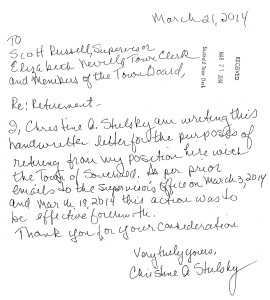 March 21, 2014
To
Scott Russell, Supervisor
Elizabeth Neville, Town Clerk
and Members of the Town Board,
RECEIVED
MAR 21 2014
Southold Town Clerk
Re: Retirement -
I, Christine A. Stulsky am writing this
handwritten letter for the purposes of
retiring from my position here with
the Town of Southold. As per prior
emails to the Supervisor's Office on March 3, 2014
and March 19, 2014 this action was to
be effective forthwith.
Thank you for your consideration
Very truly yours,
Christine A Stulsky